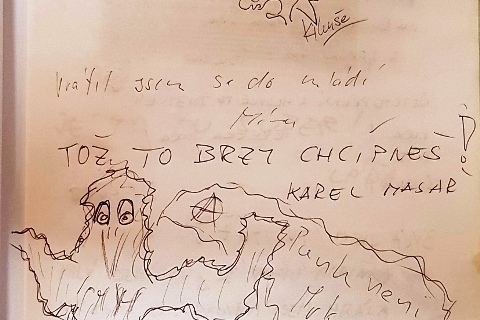 Kluše
Vrátil jsem se do mládí
TOŽ, TO BRZY CHCÍPNEŠ!
KAREL MASAŘ
A
Punk není